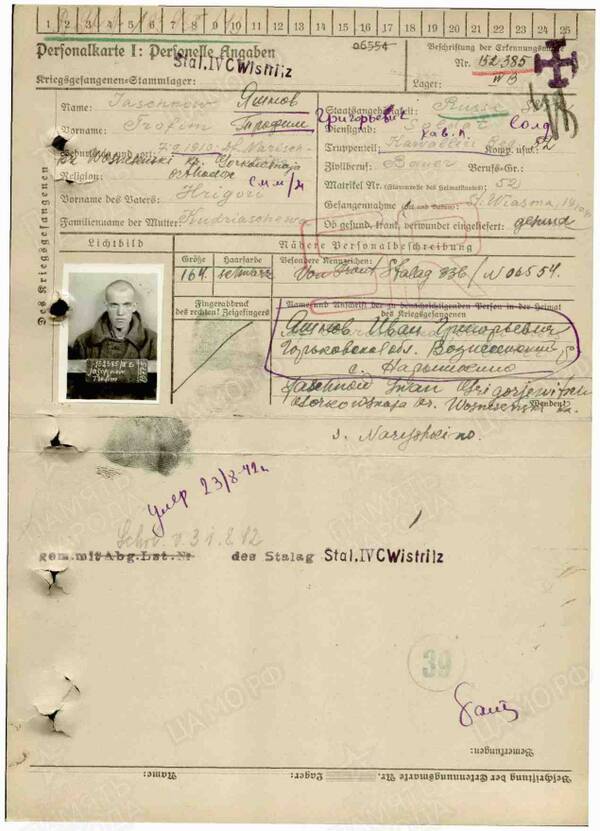 1 2 3 4 5 6 7 8 9 10 11 12 13 14 15 16 17 18 19 20 21 22 23 24 25
Personalkarte I: Personelle Angaben
06554
Beschriftung der Erkennungsmarke
Stal.IVC Wistritz
Nr. 152385
Kriegsgefangenen-Stammlager:
Lager: WB
Name: Jaschnow Яшнов
Staatsangehörigkeit: Russe
Vorname: Trofim Трофим Григорьевич
Dienstgrad: Soldat Солд
Truppenteil: Kavallerie Reg. Komp. usw.: 52
кав. п.
Geburtstag und -ort: 7.9.1910
Zivilberuf: Bauer Berufs-Gr.:
Religion: orthodox
Matrikel Nr. (Stammrolle des Heimatstaates): 52
Vorname des Vaters: Hrigori
Gefangennahme (Ort und Datum): Wiasma
Familienname der Mutter: Kudriaschewa
Ob gesund, krank, verwundet eingeliefert: gesund
Des Kriegsgefangenen
Lichtbild
Nähere Personalbeschreibung
Größe Haarfarbe Besondere Kennzeichen:
164. schwarz Von Front Stalag 336/N 06554.
Fingerabdruck
des rechten! Zeigefingers
Name und Anschrift der zu benachrichtigenden Person in der Heimat
des Kriegsgefangenen
Яшнов Иван Григорьевич
Горьковская обл. Вознесенский
с. Нарышкино
Jaschnow Iwan Grigorjewitsch
Gorkowskaja
Wenden!
s. Naryschkino.
умер 23/8-42г
Schr. v. 31.8.42
gem. mit Abg.Lst.Nr des Stalag Stal.IVC Wistritz
39
Bemerkungen:
Name:
Lager:
Beschriftung der Erkennungsmarke Nr.
ПАМЯТЬ НАРОДА
ЦАМО РФ